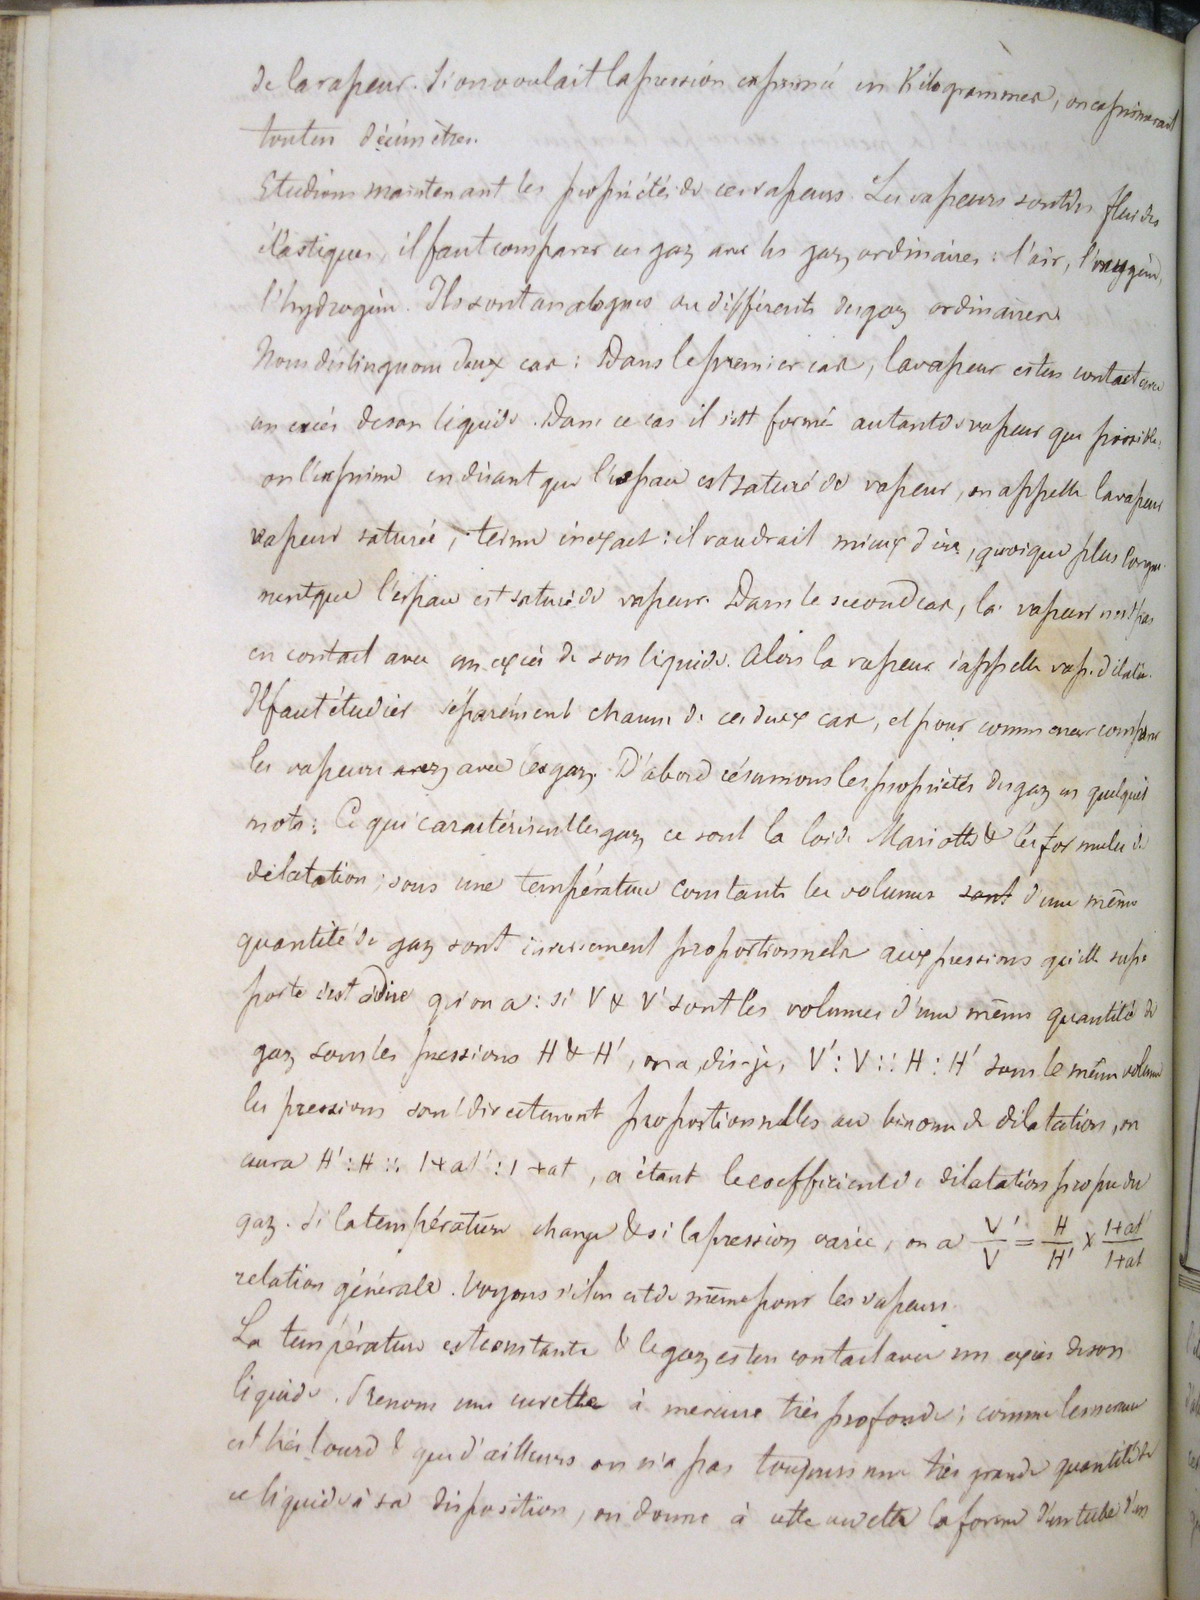 de la vapeur. Si on voulait la pression exprimée en Kilogrammes, on exprimerait
tout en décimètres.
Etudions maintenant les propriétés de ces vapeurs. Les vapeurs sont des fluides
élastiques, il faut comparer ces gaz avec les gaz ordinaires : l'air, l'oxygène,
l'hydrogène. Ils sont analogues ou différents des gaz ordinaires
Nous distinguons deux cas : Dans le premier cas, la vapeur est en contact avec
un excès de son liquide. Dans ce cas il s'est formé autant de vapeur que possible,
on l'exprime en disant que l'espace est saturé de vapeur, on appelle la vapeur
vapeur saturée, terme inexact : il vaudrait mieux dire, quoique plus longue-
ment que l'espace est saturé de vapeur. Dans le second cas, la vapeur n'est pas
en contact avec un excès de son liquide. Alors la vapeur s'appelle vap. dilatée.
Il faut étudier séparément chacun de ces deux cas, et pour commencer comparer
les vapeurs avec les gaz. D'abord résumons les propriétés des gaz en quelques
mots : Ce qui caractérisent les gaz ce sont la loi de Mariotte & les formules de
dilatation ; sous une température constante les volumes sont d'une même
quantité de gaz sont inversement proportionnels aux pressions qu'elle sup-
porte c'est à dire qu'on a : si V & V' sont les volumes d'une même quantité de
gaz sous les pressions H & H', on a, dis-je, V' : V :: H : H' sous le même volume
les pressions sont directement proportionnelles au binome de dilatation, on
aura H' : H :: 1+at' : 1+at, a étant le coefficient de dilatation propre du
gaz. Si la température change & si la pression varie, on a V'/V = H/H' x 1+at'/1+at
relation générale. Voyons s'il en est de même pour les vapeurs.
La température est constante & le gaz est en contact avec un excès de son
liquide. Prenons une cuvette à mercure très profonde ; comme le mercure
est très lourd & que d'ailleurs on n'a pas toujours une très grande quantité de
ce liquide à sa disposition, on donne à cette cuvette la forme d'un tube d'un